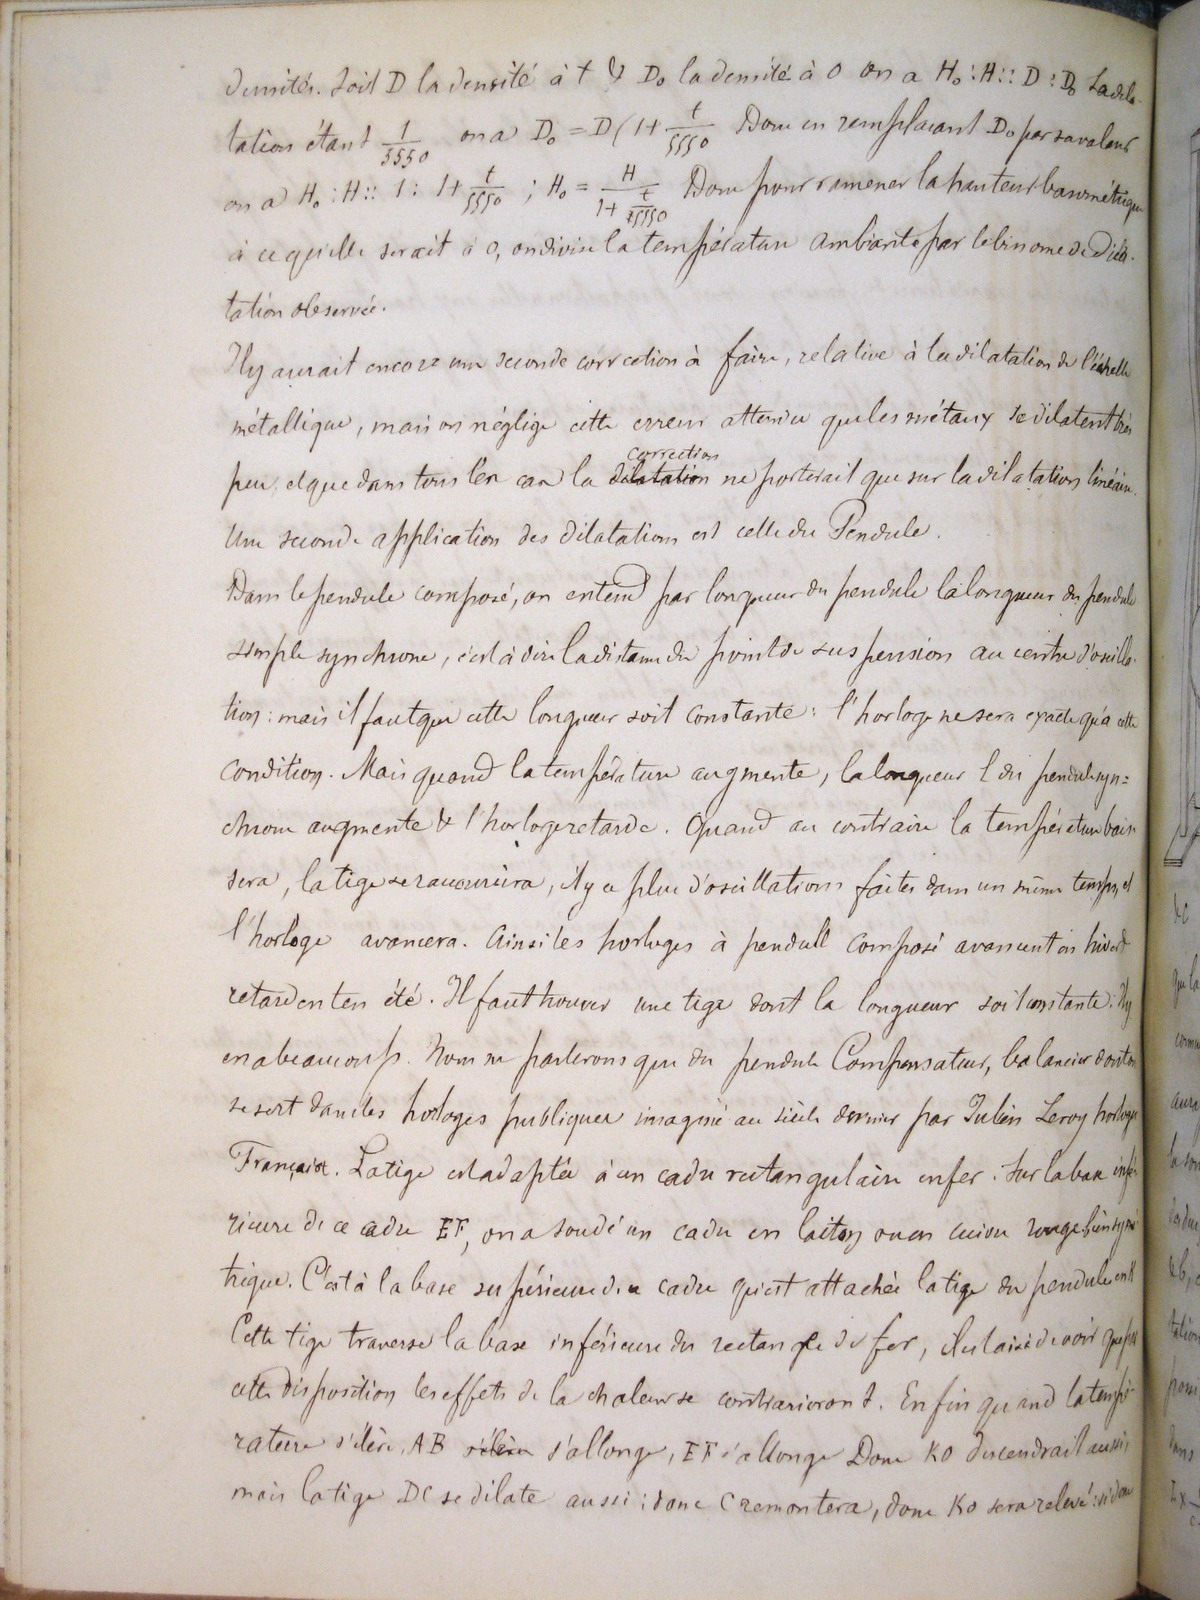 densités. Soit D la densité à t & D₀ la densité à 0 on a H₀ : H :: D : D₀ La dila-
tation étant 1/5550 on a D₀ = D (1 + t/5550 Donc en remplacant D₀ par sa valeur
on a H₀ : H :: 1 : 1 + t/5550 ; H₀ = H/(1 + t/5550) Donc pour ramener la hauteur barométrique
à ce qu'elle serait à 0, on divise la température ambiante par le binome de dila-
tation observée.
Il y aurait encore une seconde correction à faire, relative à la dilatation de l'échelle
métallique, mais on néglige cette erreur attendu que les métaux se dilatent très
peu, et que dans tous les cas la correction dilatation ne porterait que sur la dilatation linéaire.
Une seconde application des dilatations est celle du Pendule.
Dans le pendule composé, on entend par longueur du pendule la longueur du pendule
simple synchrone, c'est à dire la distance du point de suspension au centre d'oscilla-
tion : mais il faut que cette longueur soit constante : l'horloge ne sera exacte qu'à cette
condition. Mais quand la température augmente, la longueur l du pendule syn=
chrone augmente & l'horloge retarde. Quand au contraire la température bais-
sera, la tige se raccourcira, il y a plus d'oscillations faites dans un même temps, et
l'horloge avancera. Ainsi les horloges à pendule composé avancent en hiver &
retardent en été. Il faut trouver une tige dont la longueur soit constante. Il y
en a beaucoup. Nous ne parlerons que du pendule Compensateur, balancier dont on
se sert dans les horloges publiques imaginé au siècle dernier par Julien Leroy horloger
Français. La tige est adaptée à un cadre rectangulaire en fer. Sur la base infé-
rieure de ce cadre EF, on a soudé un cadre en laiton ou en cuivre rouge bien symé-
trique. C'est à la base supérieure de ce cadre qu'est attachée la tige du pendule en K
Cette tige traverse la base inférieure du rectangle de fer, il est aisé de voir que par
cette disposition les effets de la chaleur se contrarieront. Enfin quand la tempé-
rature s'élève, AB s'élève s'allonge, EF s'allonge Donc KO descendrait aussi,
mais la tige DC se dilate aussi : donc C remontera, donc KO sera relevé : si donc